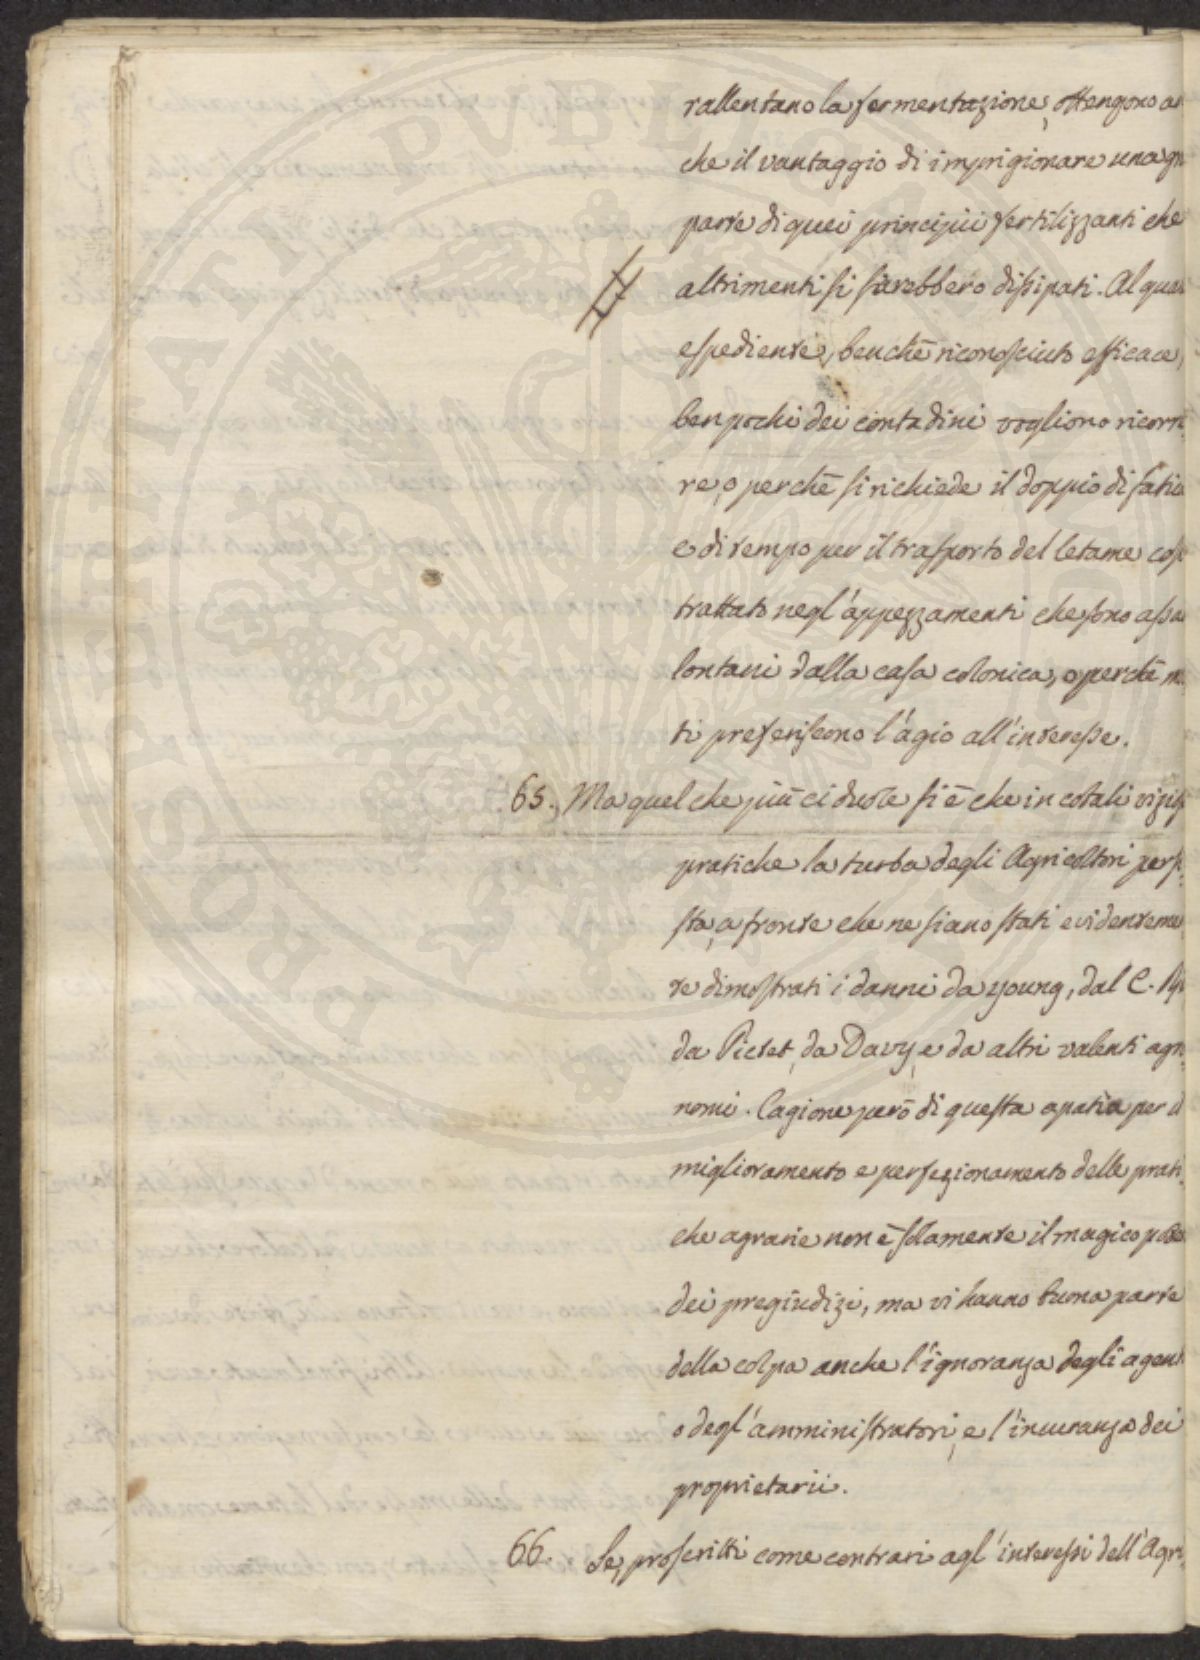 rallentano la fermentazione, ottengono an
che il vantaggio di imprigionare una gr
parte di quei principii fertilizzanti che
altrimenti si sarebbero dissipati. Al qual
espediente, benchè riconosciuto efficace,
ben pochi dei contadini vogliono ricorre
re, o perchè si richiede il doppio di fatica
e di tempo per il trasporto del letame cosi
trattato negl'appezzamenti che sono assai
lontani dalla casa colonica, o perchè m
ti preferiscono l'agio all'interesse.
65., Ma quel che più ci duole si è che in cotali vizi
pratiche la turba degli Agricoltori persi
sta, a fronte che ne siano stati evidentemen
te dimostrati i danni da Young, dal C. Rè
da Pictet, da Davy, e da altri valenti agro
nomi. Cagione però di questa apatia per il
miglioramento e perfezionamento delle prati
che agrarie non è solamente il magico potere
dei pregiudizi, ma vi hanno buona parte
della colpa anche l'ignoranza degli agenti
o degl'amministratori, e l'incuranza dei
proprietarii.
66. Se, proscritti come contrari agl'interessi dell'Agri
POSTEITATI PVBLICAE